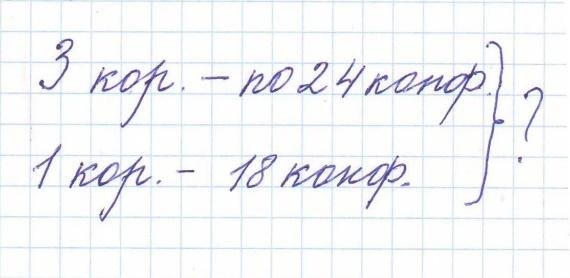 3 кор. – по 24 конф.
1 кор. – 18 конф.
?